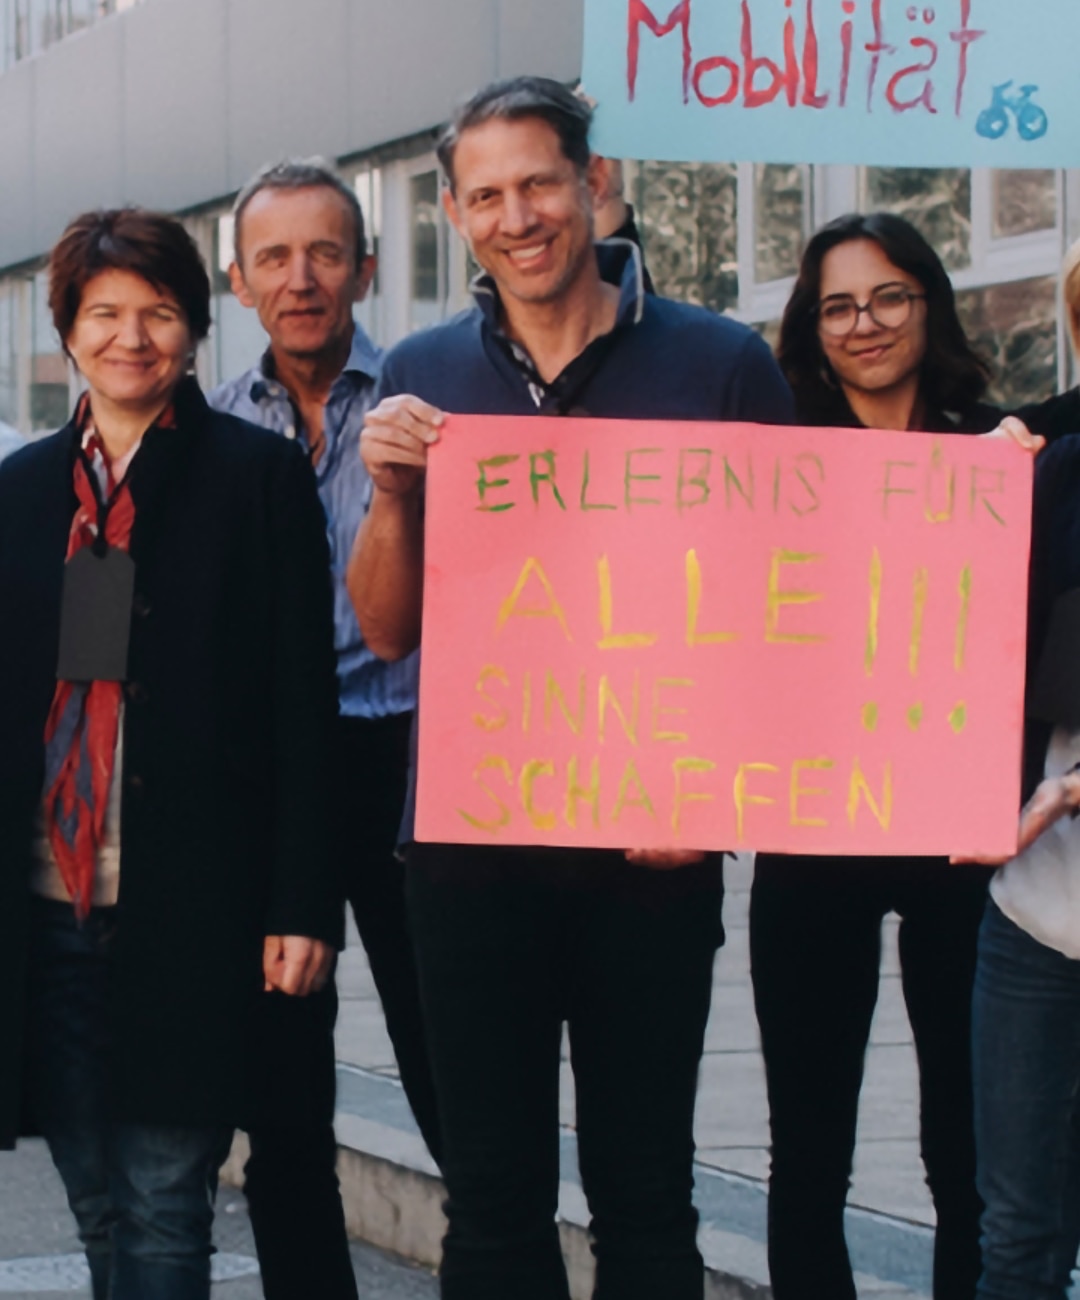 Mobilität
ERLEBNIS FÜR
ALLE!!!
SINNE
SCHAFFEN